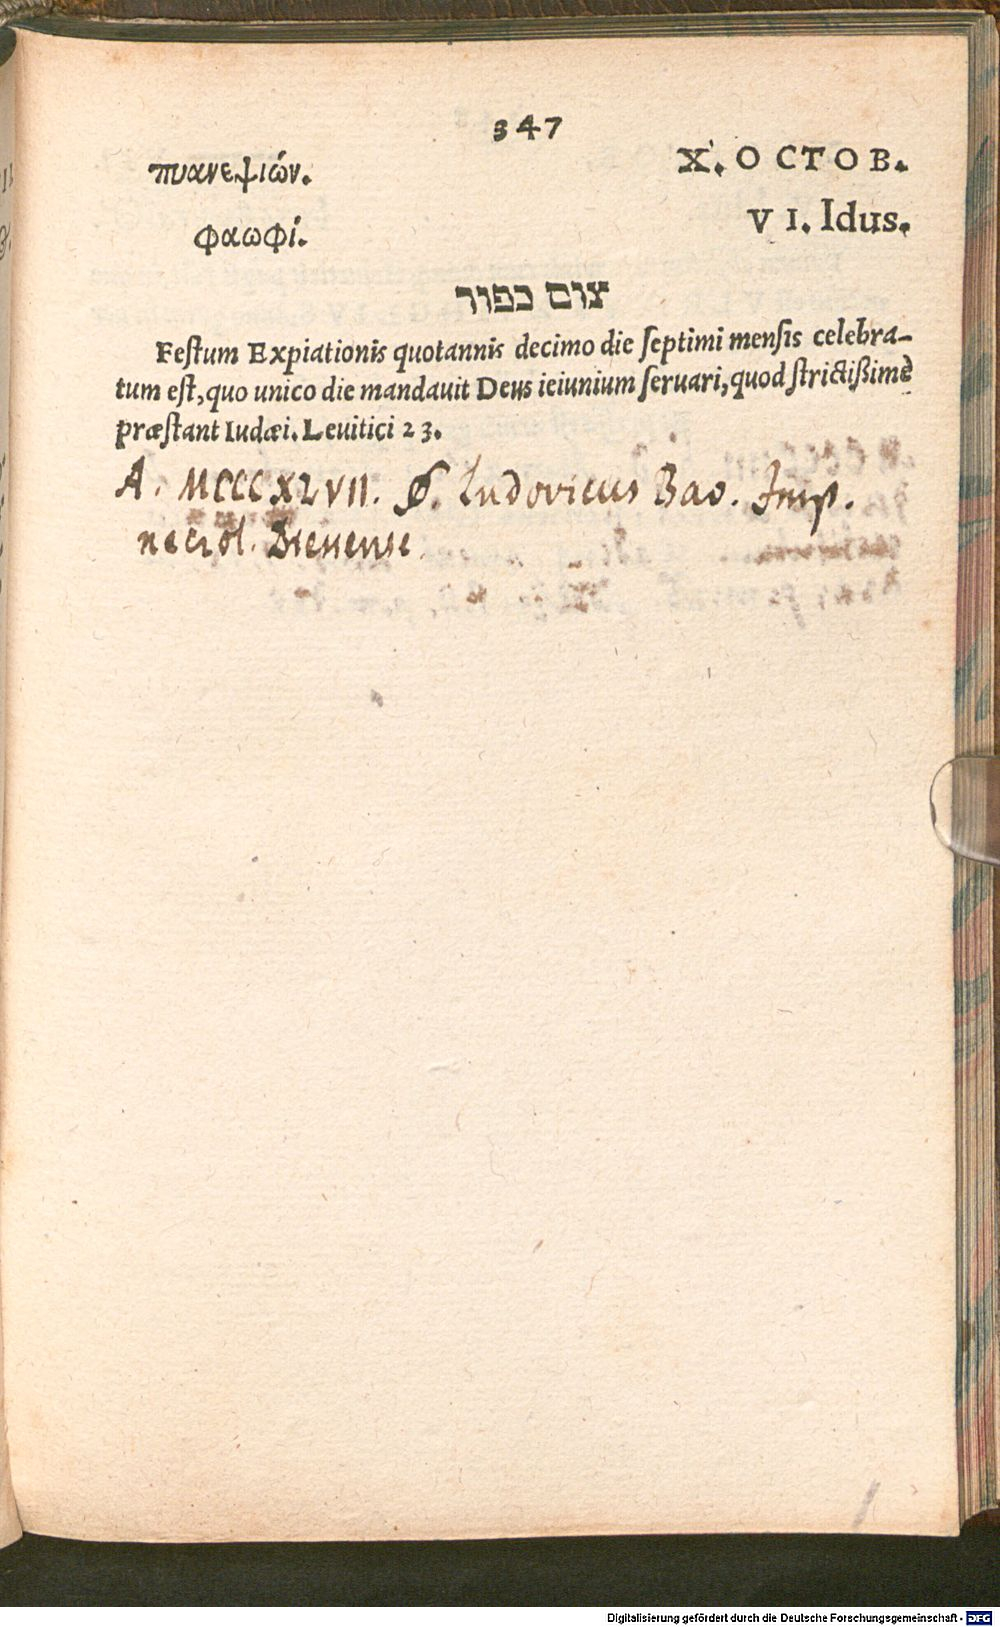 347
πυανεψιών.
X. OCTOB.
φαωφί.
VI. Idus.
צום כפור
Festum Expiationis quotannis decimo die septimi mensis celebra-
tum est, quo unico die mandauit Deus ieiunium seruari, quod strictißimè
præstant Iudæi. Leuitici 23.
A. MCCCXLVII. Ludovicus Bav. Imp.
necrol. Diessense.
Digitalisierung gefördert durch die Deutsche Forschungsgemeinschaft - DFG